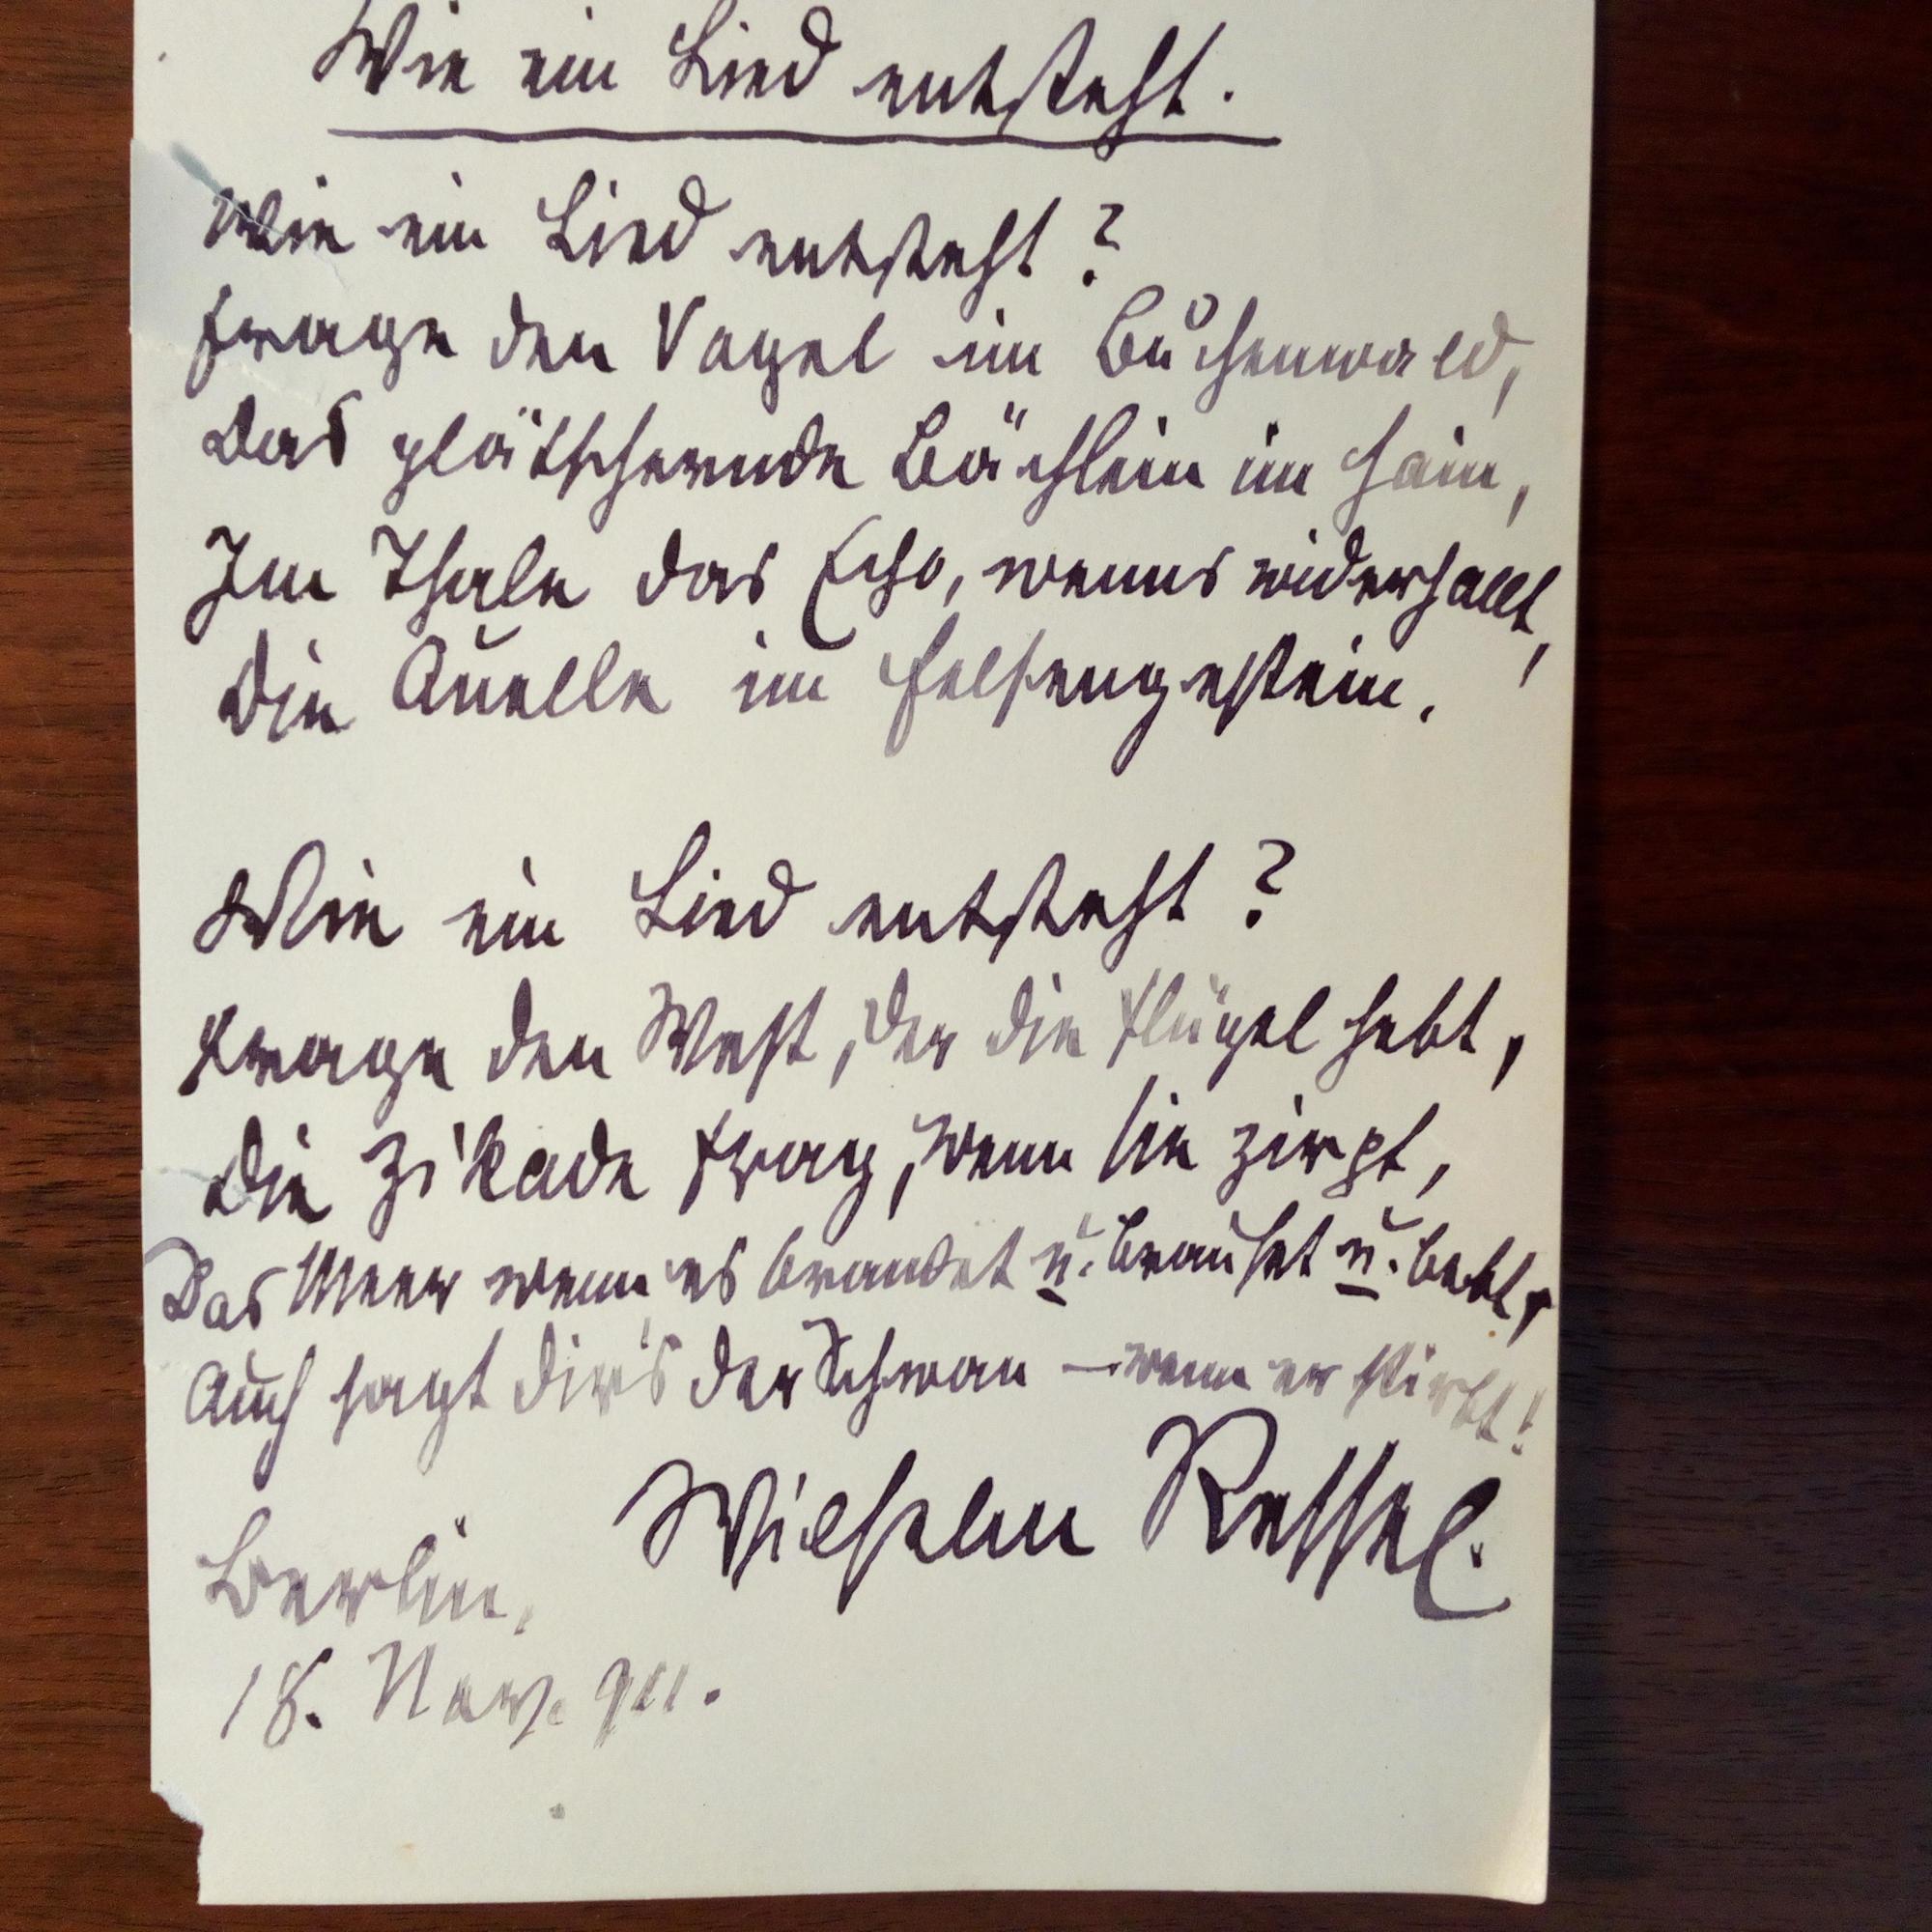 Wie ein Lied entsteht.
Wie ein Lied entsteht?
Frage den Vogel im Buchenwald,
Das plätschernde Bächlein im Hain,
Im Thale das Echo, wenns widerhallt,
Die Quelle im Felsengestein.
Wie ein Lied entsteht?
Frage den West, der die Flügel hebt,
Die Zikade frag, wenn sie zirpt,
Das Meer wenn es brandet u. brauset u. bebt,
Auch sagt dir's der Schwan — wenn er stirbt!
Wilhelm Ressel.
Berlin,
18. Nov. 911.